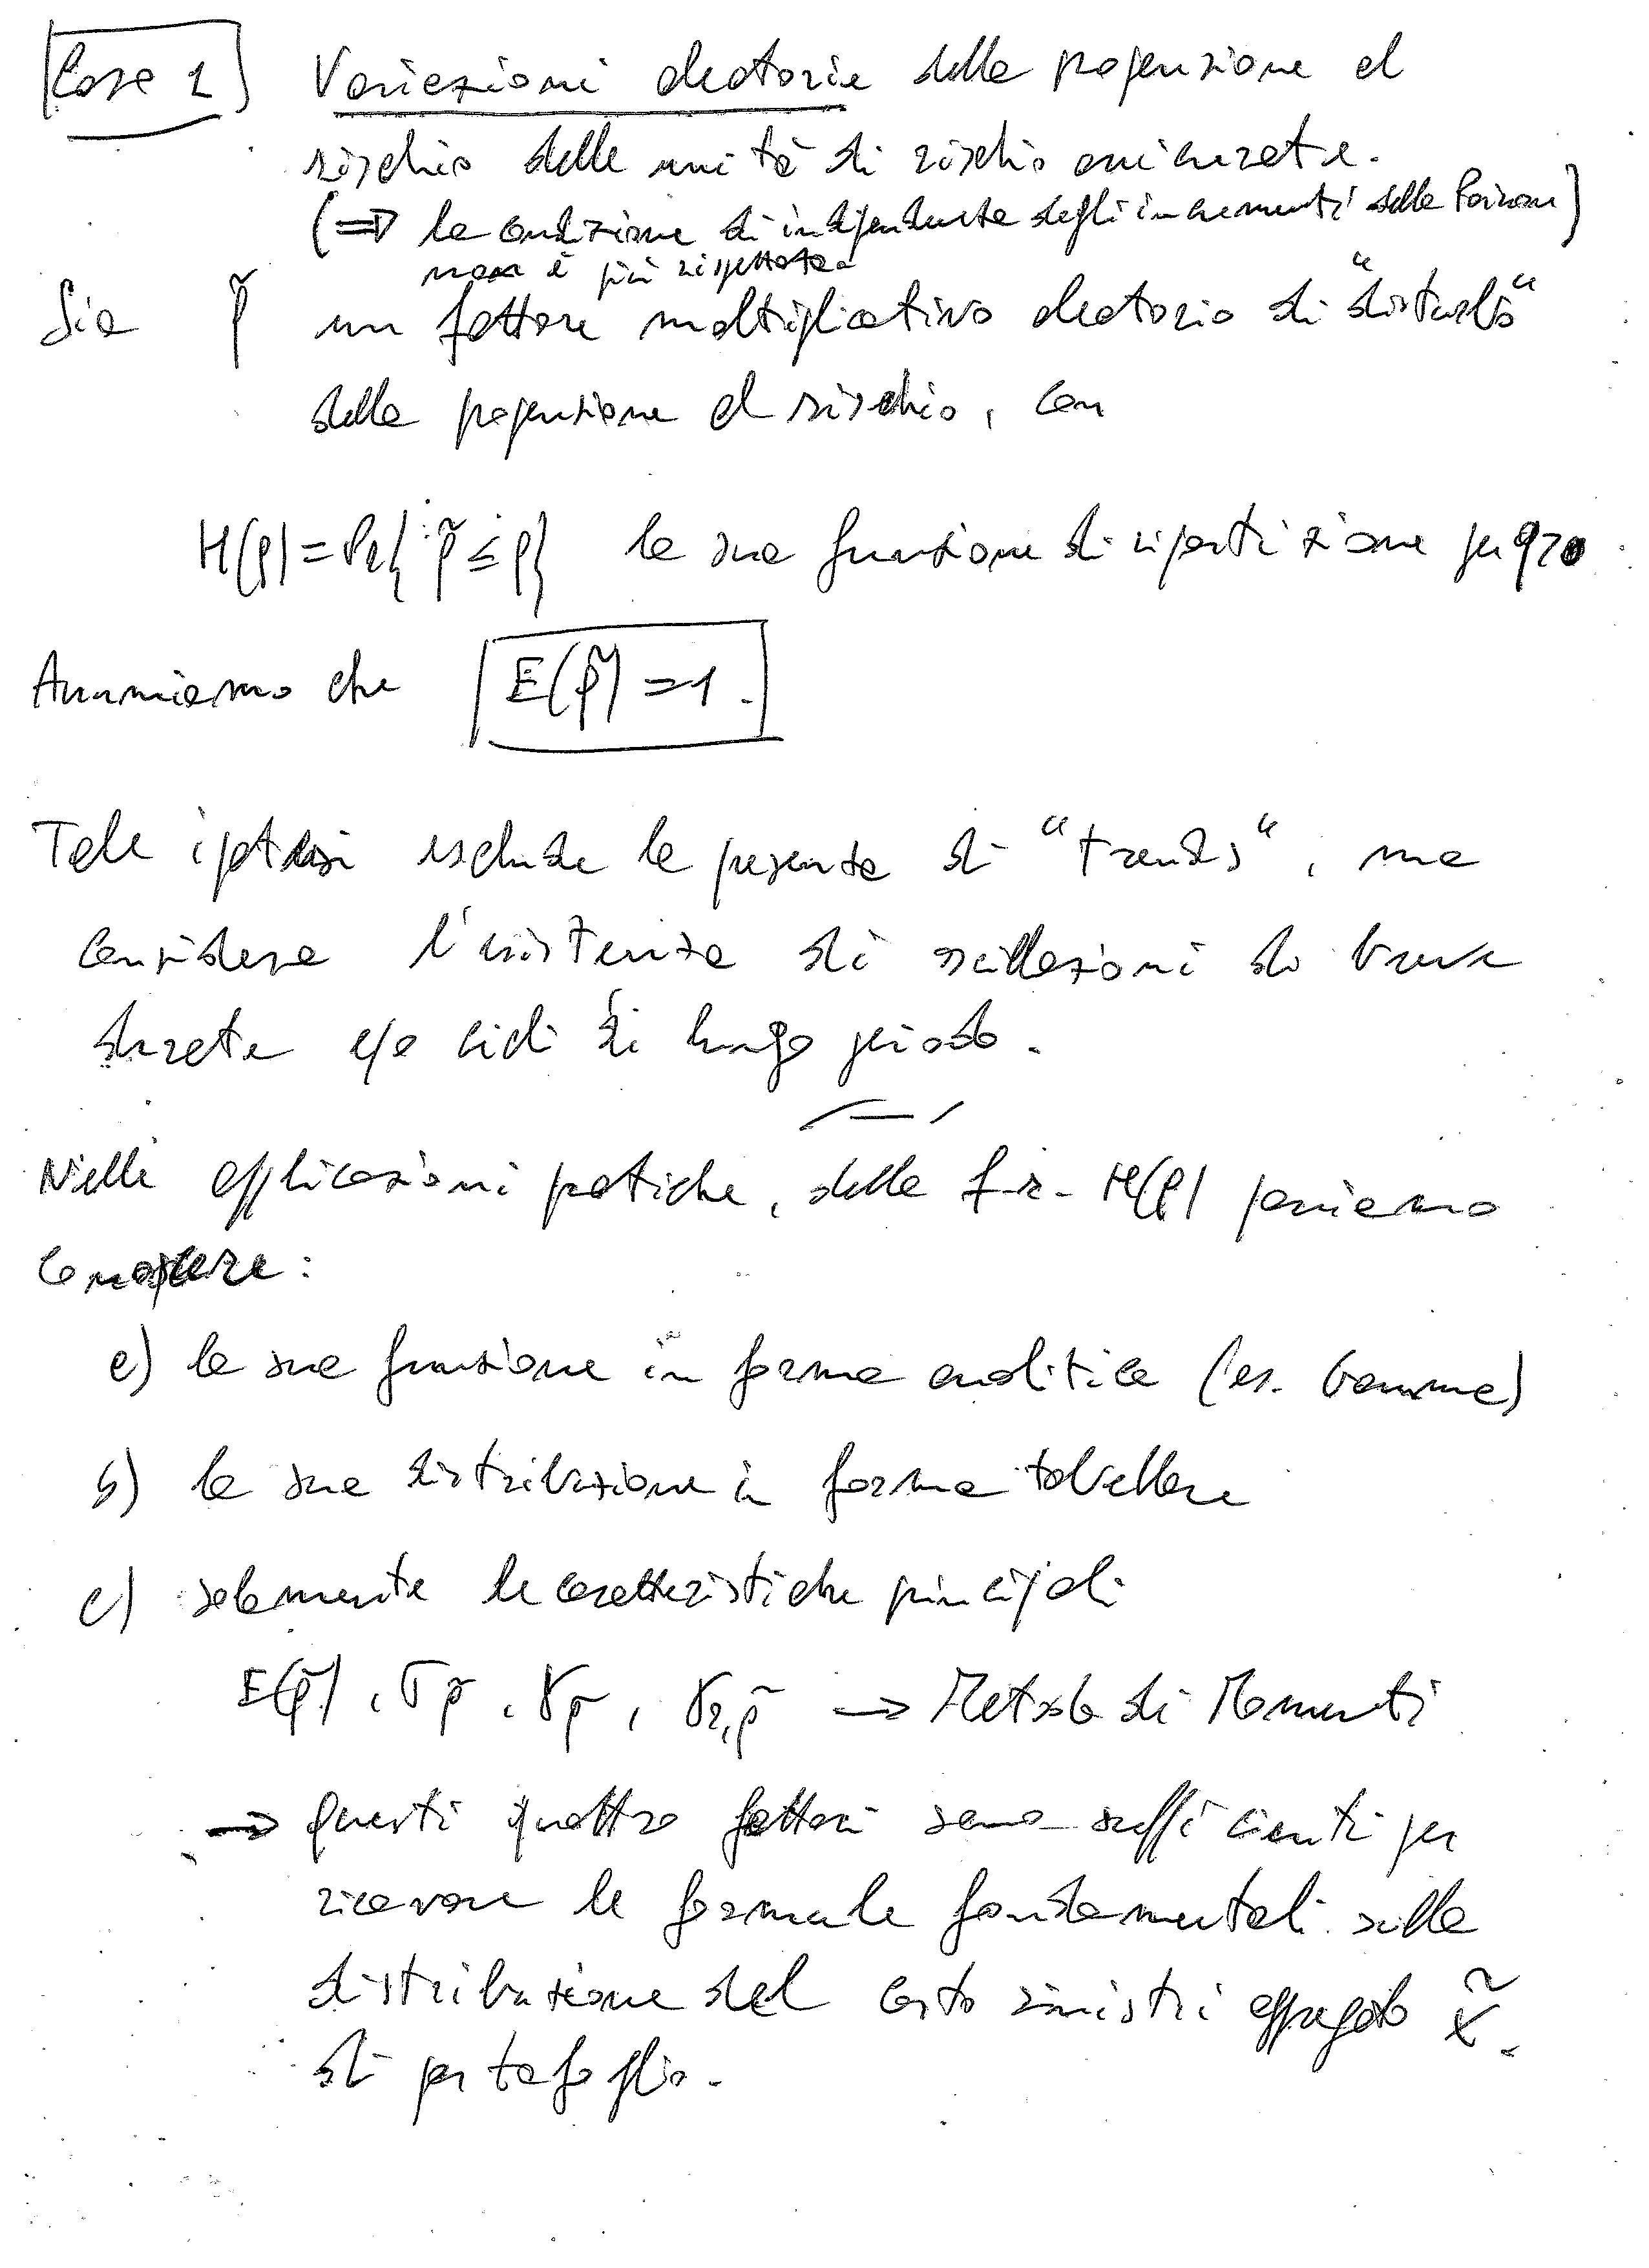 Caso 1 Variazioni aleatorie della propensione al
rischio delle unità di rischio assicurate.
(⇒ la condizione di indipendenza degli incrementi della Poisson)
non è più rispettata.
Sia q̃ un fattore moltiplicativo aleatorio di "disturbo"
della propensione al rischio, con
H(q) = Pr{ q̃ ≤ q} la sua funzione di ripartizione per q>0
Assumiamo che E(q̃) = 1.
Tale ipotesi esclude la presenza di "trends", ma
considera l'esistenza di oscillazioni di breve
durata e/o cicli di lungo periodo.
Nelle applicazioni pratiche, della f.r. H(q) possiamo
conoscere:
a) la sua funzione in forma analitica (es. Gamma)
b) la sua distribuzione in forma tabellare
c) solamente le caratteristiche principali
E(q̃), σq̃, γq̃, γ2,q̃ → Metodo di Momenti
→ questi quattro fattori sono sufficienti per
ricavare le formule fondamentali sulla
distribuzione del costo sinistri aggregato X̃
di portafoglio.